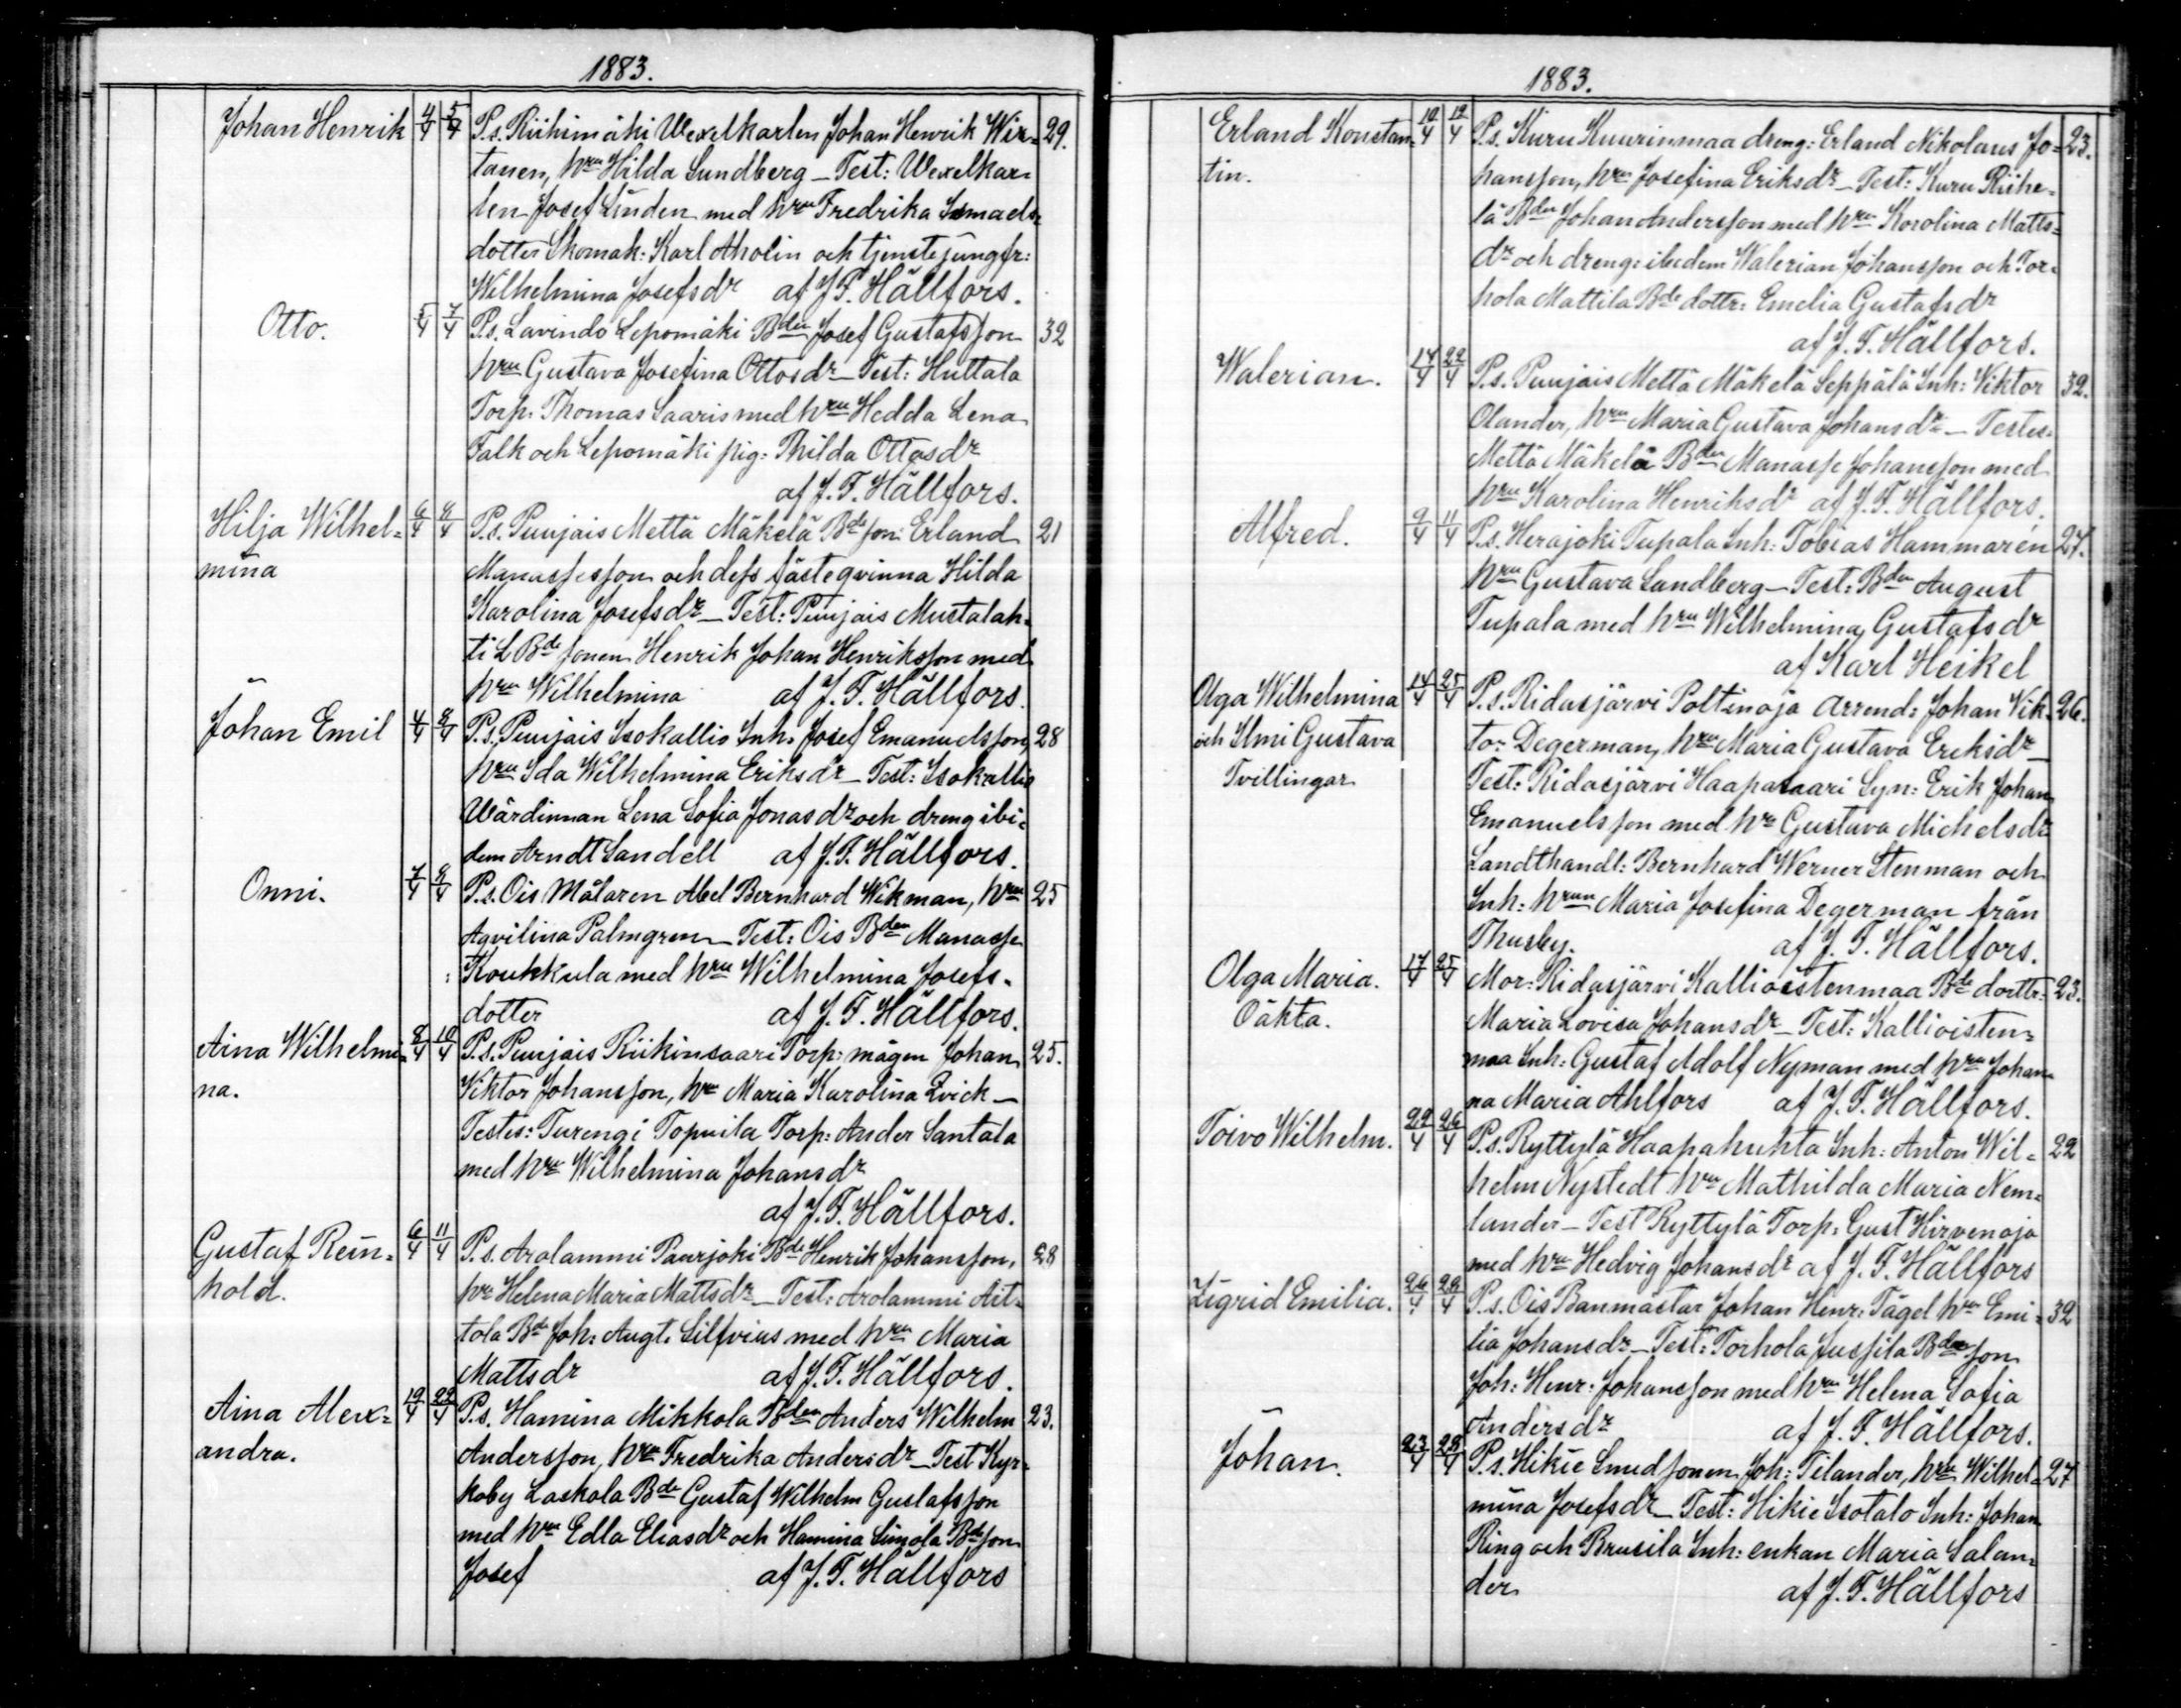 1883.
Johan Henrik 4/4 5/4 P.s. Riihimäki Wexelkarlen Johan Henrik Wir= 29.
tanen, hru Hilda Sundberg — Test: Wexelkar=
len Josef Linden med hru Fredrika Ismaels=
dotter Skomak: Karl Aholin och tjenstejungfr:
Wilhelmina Josefsdr af J. F. Hällfors.
Otto. 5/4 7/4 P.s. Lavindo Lepomäki Bden Josef Gustafsson 32
hru Gustava Josefina Ottosdr — Test: Huttala
Torp. Thomas Saaris med hru Hedda Lena
Falk och Lepomäki pig: Thilda Ottosdr
af J. F. Hällfors.
Hilja Wilhel= 6/4 8/4 P.s. Puujais Mettä Mäkelä Bde son: Erland 21
mina Manassesson och dess fästeqvinna Hilda
Karolina Josefsdr — Test: Puujais Mustalah=
ti L Bde sonen Henrik Johan Henriksson med
hru Wilhelmina af J. F. Hällfors.
Johan Emil 4/4 8/4 P.s. Puujais Isokallio Inh. Josef Emanuelsson, 28
hru Ida Wilhelmina Eriksdr — Test: Isokallio
Wärdinnan Lena Sofia Jonasdr och dreng ibi=
dem Arndt Sandell af J. F. Hällfors.
Onni. 7/4 8/4 P.s. Ois Målaren Abel Bernhard Wikman, hru 25
Aqvilina Palmgren — Test: Ois Bden Manasse
Koukkula med hru Wilhelmina Josefs=
dotter af J. F. Hällfors.
Aina Wilhelmi= 8/4 10/4 P.s. Puujais Riikinsaari Torp: mågen Johan 25.
na. Viktor Johansson, hru Maria Karolina Qvick —
Testes: Turengi Topuila Torp: Ander Santala
med hru Wilhelmina Johansdr
af J. F. Hällfors.
Gustaf Rein= 6/4 11/4 P.s. Arolammi Paurjoki Bde Henrik Johansson, 28
hold. hru Helena Maria Mattsdr — Test: Arolammi Ait=
tola Bde Joh: Augt. Silfvius med hru Maria
Mattsdr af J. F. Hällfors.
Aina Alex= 19/4 22/4 P.s. Hamina Mikkola Bden Anders Wilhelm 23.
andra. Andersson, hru Fredrika Andersdr — Test Kyr=
koby Laskola Bde Gustaf Wilhelm Gustafsson
med hru Edla Eliasdr och Hamina Simola Bde son
Josef af J. F. Hällfors
1883.
Erland Konstan= 12/4 19/4 P.s. Kuru Kuurinmaa dreng: Erland Nikolaus Jo= 23.
tin. hansson, hru Josefina Eriksdr — Test: Kuru Riihe=
lä Bden Johan Andersson med hru Karolina Matts=
dr och dreng: ibidem Walerian Johansson och Tor=
hola Mattila Bde dottr: Emelia Gustafsdr
af J. F. Hällfors.
Walerian. 14/4 22/4 P.s. Puujais Mettä Mäkelä Seppälä Inh: Viktor 32.
Olander, hru Maria Gustava Johansdr — Testes:
Mettä Mäkelä Bden Manasse Johansson med
hru Karolina Henriksdr af J. F. Hällfors.
Alfred. 9/4 11/4 P.s. Herajoki Tupala Inh: Tobias Hammaren 27.
hru Gustava Sandberg — Test: Bden August
Tupala med hru Wilhelmina Gustafsdr
af Karl Heikel
Olga Wilhelmina 14/4 25/4 P.s. Ridasjärvi Poltinoja Arrend: Johan Vik= 26.
och Ilmi Gustava tor Degerman, hru Maria Gustava Eriksdr —
Tvillingar Test: Ridasjärvi Haapasaari Syn: Erik Johan
Emanuelsson med hru Gustava Michelsdr
Landthandl: Bernhard Werner Stenman och
Inh: hrun Maria Josefina Degerman från
Thusby. af J. F. Hällfors.
Olga Maria. 17/4 25/4 Mor: Ridasjärvi Kallioistenmaa Bde dottr: 23.
Oäkta. Maria Lovisa Johansdr — Test: Kallioisten=
maa Inh: Gustaf Adolf Nyman med hru Johan=
na Maria Ahlfors af J. F. Hällfors.
Toivo Wilhelm. 22/4 26/4 P.s. Ryttylä Haapahuhta Inh: Anton Wil= 22
helm Nystedt hru Mathilda Maria Nem=
lander — Test Ryttylä Torp: Gust Hirvenoja
med hru Hedvig Johansdr af J. F. Hällfors
Zigrid Emilia. 26/4 28/4 P.s. Ois Banmästar Johan Henr: Tägel hru Emi= 32
lia Johansdr — Test: Torhola Jussila Bde son
Joh: Henr: Johansson med hru Helena Sofia
Andersdr af J. F. Hällfors.
Johan. 23/4 28/4 P.s. Hikie Smedsonen Joh: Tilander, hru Wilhel= 27
mina Josefsdr — Test: Hikie Isotalo Inh: Johan
Ring och Brusila Inh: enkan Maria Salan=
der af J. F. Hällfors